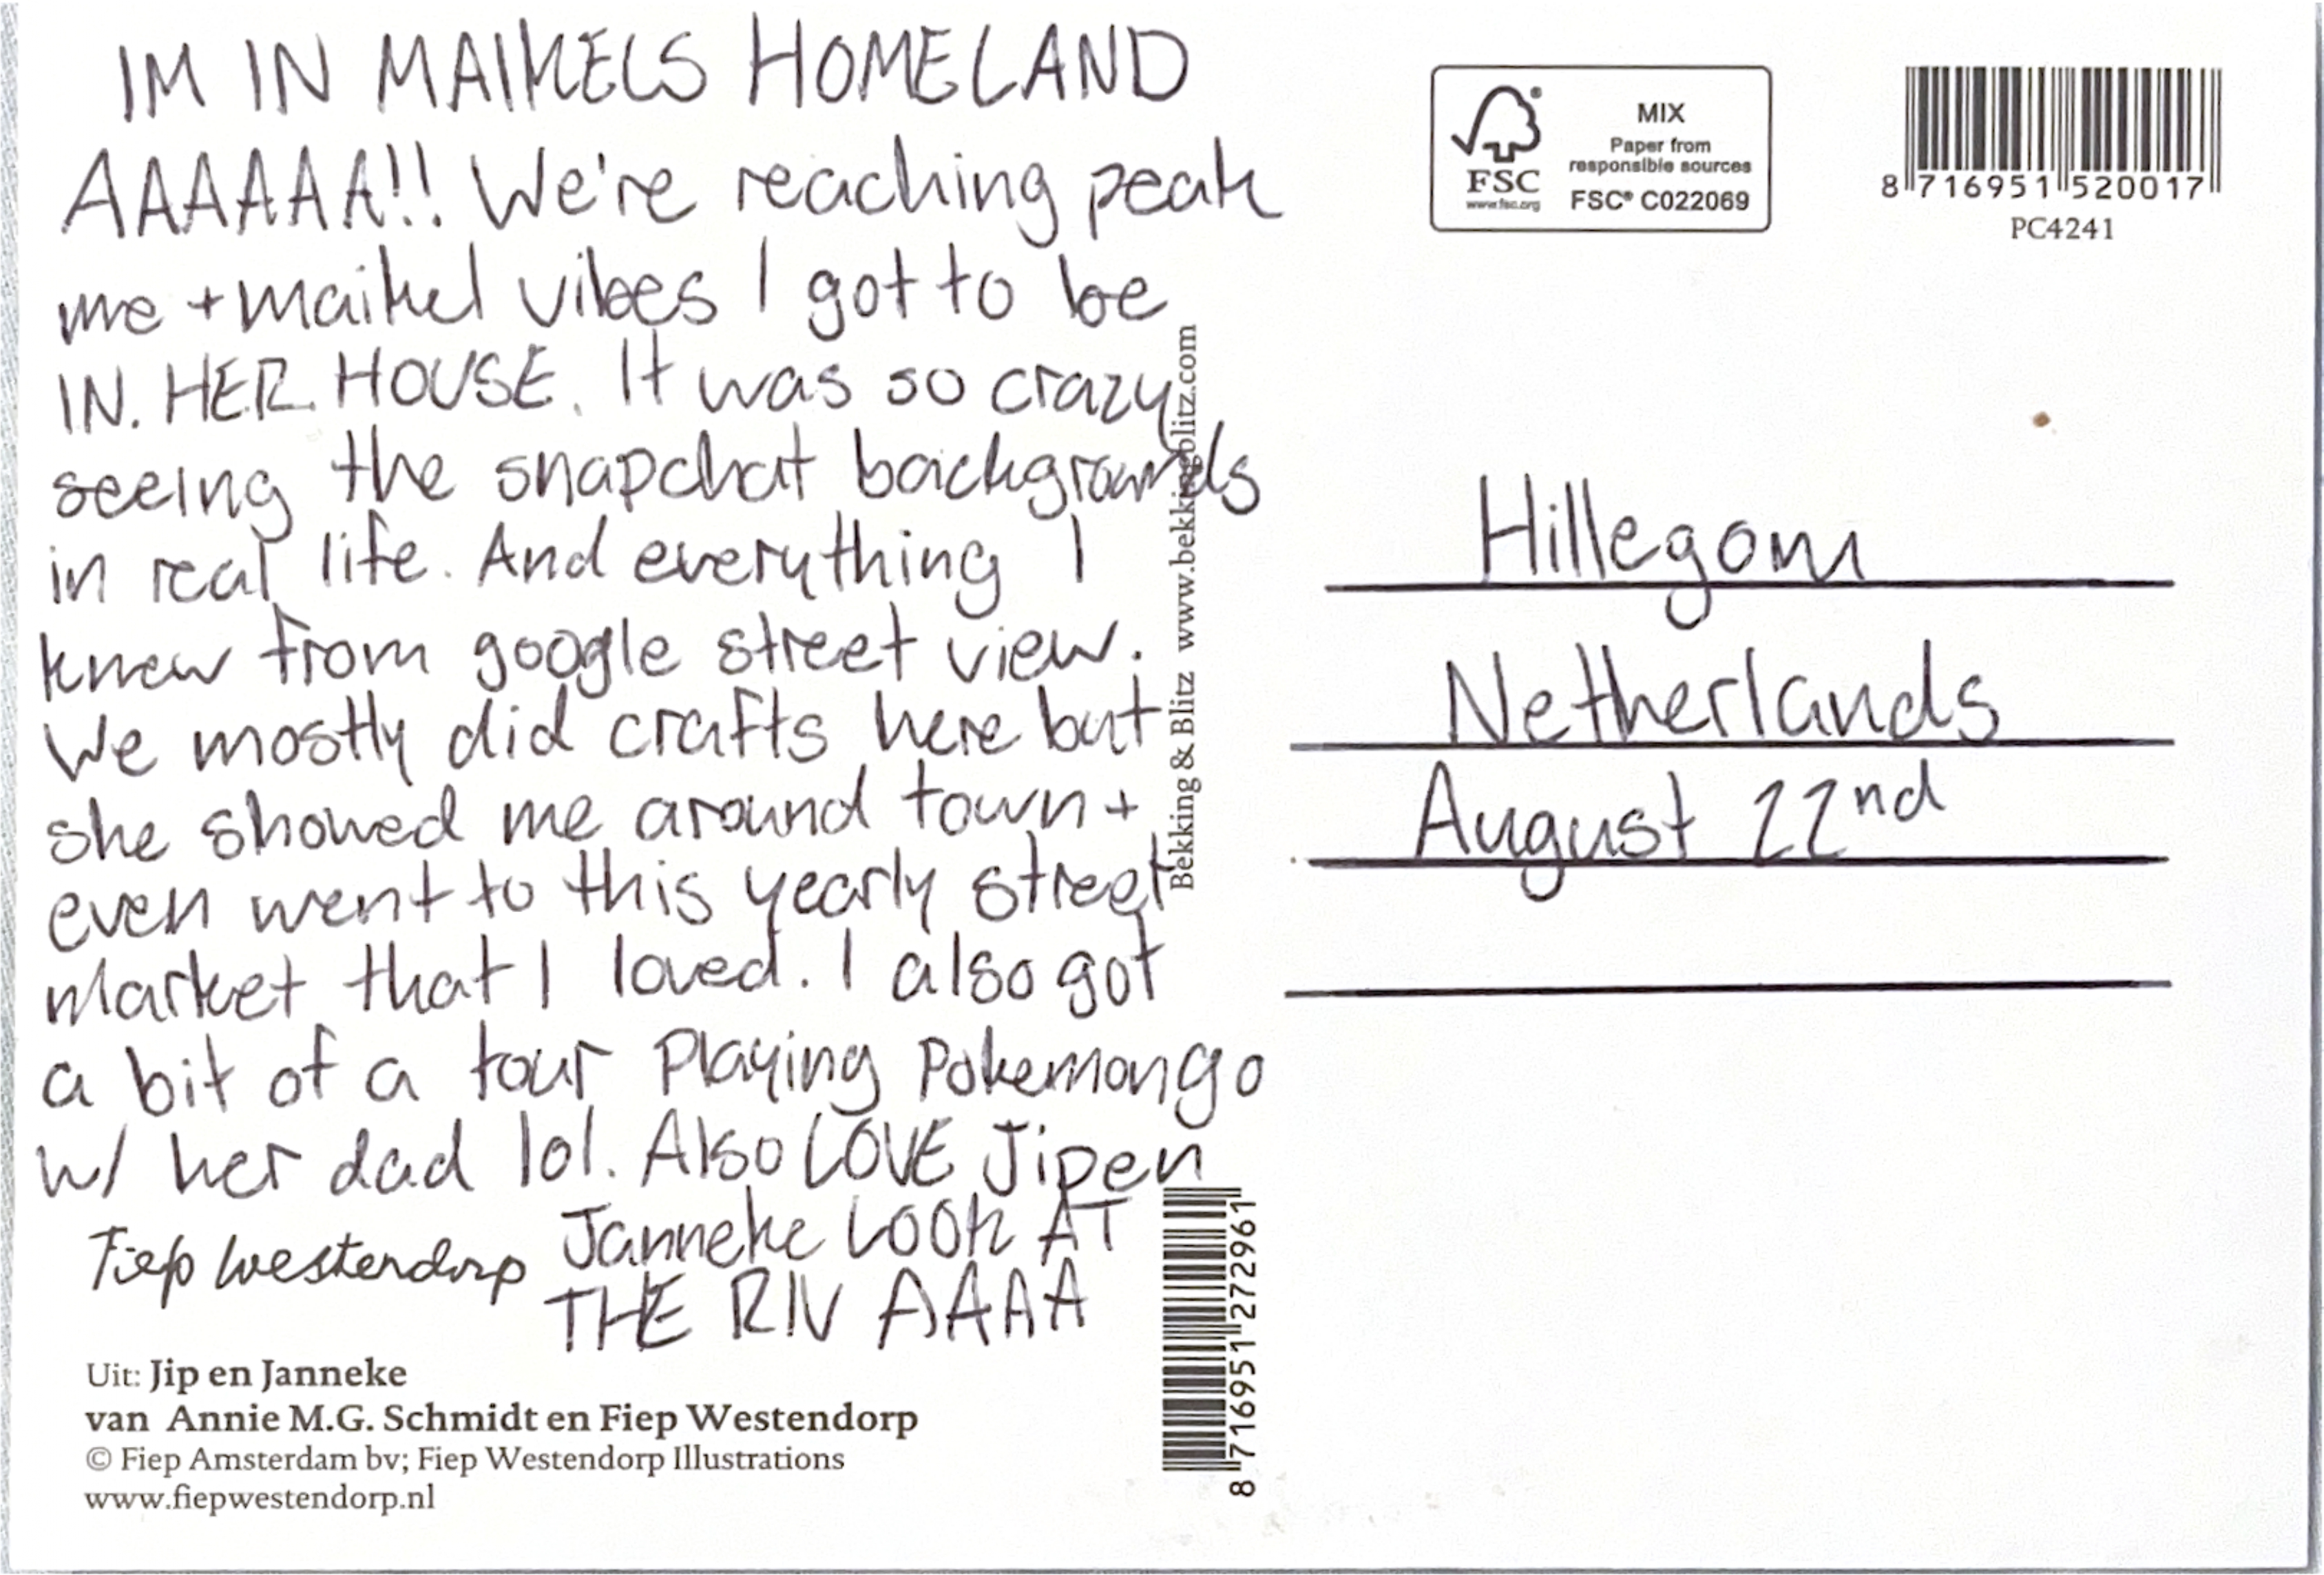 IM IN MAIKELS HOMELAND
AAAAAA!! We're reaching peak
me + maikel vibes I got to be
IN. HER. HOUSE. It was so crazy
seeing the snapchat backgrounds
in real life. And everything I
knew from google street view.
We mostly did crafts here but
she showed me around town +
even went to this yearly street
market that I loved. I also got
a bit of a tour Playing Pokemon go
w/ her dad lol. Also LOVE Jip en
Janneke LOOK AT
THE RIV AAAA
Fiep Westendorp
Uit: Jip en Janneke
van Annie M.G. Schmidt en Fiep Westendorp
© Fiep Amsterdam bv; Fiep Westendorp Illustrations
www.fiepwestendorp.nl
Bekking & Blitz www.bekkingblitz.com
8 716951 272961
FSC
www.fsc.org
MIX
Paper from
responsible sources
FSC® C022069
8 716951 520017
PC4241
Hillegom
Netherlands
August 22nd